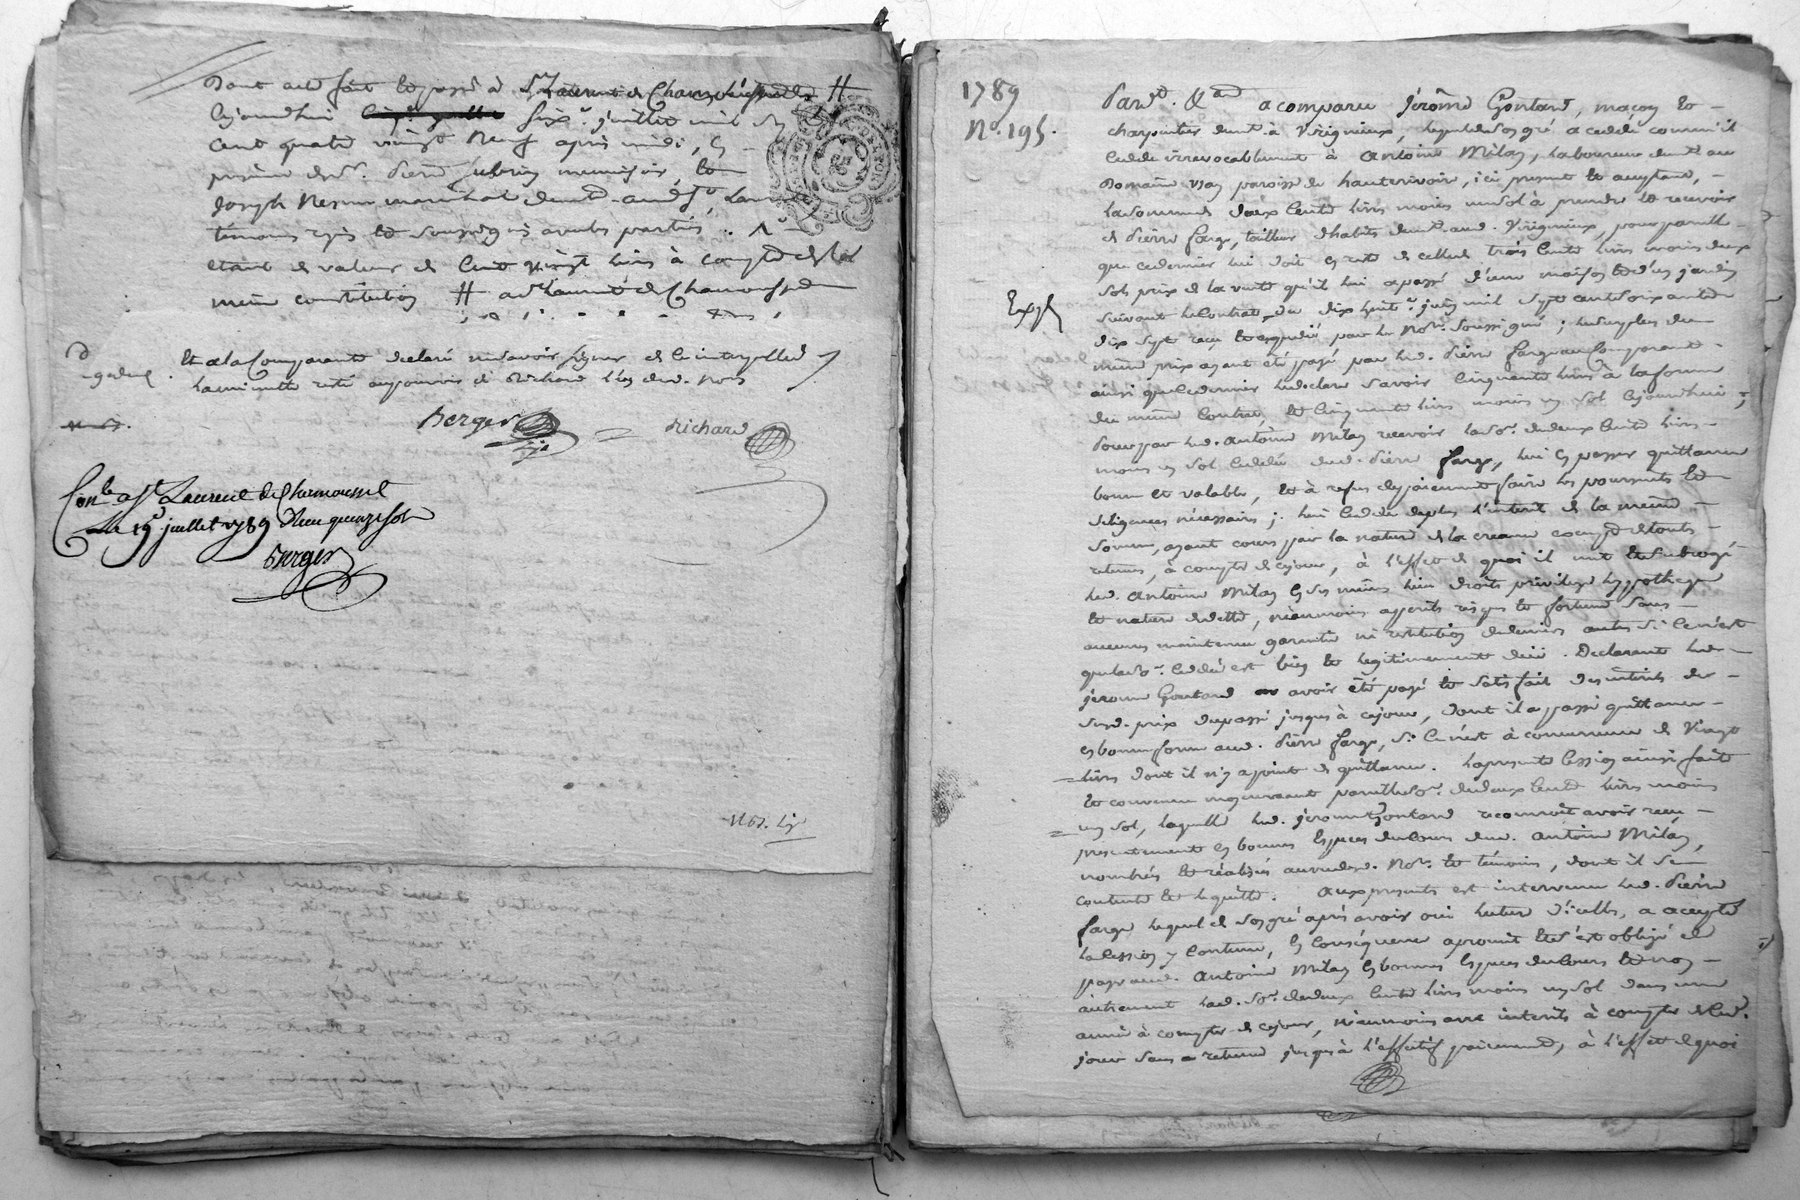 Dont acte fait et passé à St Laurent de Chamousset #
Cejourdhui six juillet mil sept
cent quatre vingt neuf après midi, en
présence de Sr. Pierre menuisier, et
Joseph maréchal demt. aud. St Laurent
témoins requis et soussignés avec les parties
étant de valeur de cent vingt livres à compte de la
même constitution # à St Laurent de Chamousset
Et a la comparante declaré ne savoir signer de ce interpellée
la minute reste au pouvoir de Richard l'un desd. nores
Berger
Richard
Conlé à St Laurent de Chamousset
Le 19e juillet 1789 Reçu quinze sols
Berger
1789
No. 195.
Pardt. &a a comparu jérôme Goutard, maçon et
charpentier demt. à Virigneux, lequel de son gré a cédé comme il
cedde irrévocablement à Antoine Milan, laboureur demt. au
Domaine paroisse de hauterivoir, ici present et acceptant,
la somme de deux cents livres moins un sol à prendre et recevoir
de Pierre farge, tailleur d'habits demt. aud. Virigneux, pour pareille
que ce dernier lui doit en reste de celle de trois cents livres moins deux
sols prix de la vente qu'il lui a passé d'une maison et d'un jardin
Expé
suivant le contrat du dix huit juin mil sept cent soixante
dix sept reçu et expédié par le nore. soussigné ; le surplus du
même prix ayant été payé par led. Pierre farge au comparant
ainsi que ce dernier le declare savoir cinquante livres à la forme
du même contrat, et cinquante livres moins un sol cejourdhui ;
Pour par led. Antoine Milan recevoir la so. de deux cents livres
moins un sol ceddée dud. Pierre farge, lui en passer quittance
bonne et valable, et à refus de paiement faire les poursuites et
diligences nécessaires ; lui cedde de plus l'interet de la même
somme, ayant cours par la nature de la creance exempt de toute
retenue, à compter de cejour, à l'effet de quoi il met et subroge
led. Antoine Milan en ses mêmes lieu droits privilege hypotheque
et nature de dette, néanmoins à ses perils risques et fortune sans
aucune maintenue garantie ni restitution de deniers autre si ce n'est
que la so. ceddée est bien et legitimement düe. Declarant led.
jerome Goutard avoir été payé et satisfait des interets de
sesd. prix du passé jusques à cejour, dont il a passé quittance
en bonne forme aud. Pierre farge, si ce n'est à concurrence de vingt
livres dont il n'y a point de quittance. La presente cession ainsi faite
et convenue moyennant pareille so. de deux cents livres moins
un sol, laquelle led. jerome Goutard reconnoit avoir reçu
presentement en bonnes especes du cours dud. Antoine Milan,
nombrés et réalisés au vu desd. nore. et témoins, dont il se
contente et le quitte. Aux presentes est intervenu led. Pierre
farge lequel de son gré après avoir oui lecture d'icelles, a accepté
la cession y contenue, en conséquence a promit et s'est obligé de
payer aud. Antoine Milan en bonnes especes du cours et non
autrement lad. so. de deux cents livres moins un sol dans une
année à compter de cejour, néanmoins avec interets à compter dud.
jour sans retenue jusqu'à l'effectif paiement, à l'effet de quoi